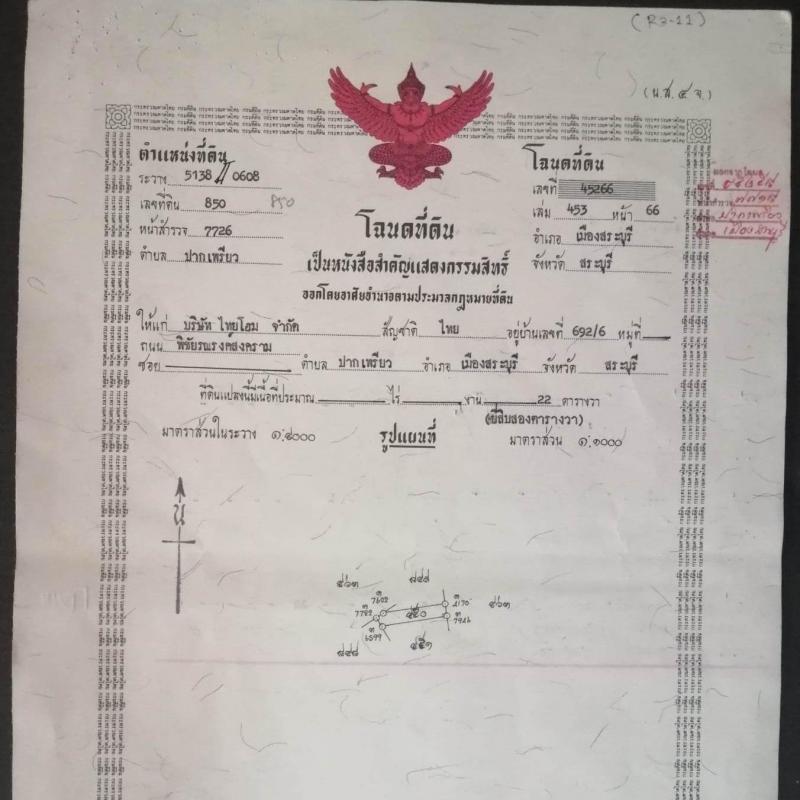 (R3-11)
(น.ส.๔ จ.)
ตำแหน่งที่ดิน
ระวาง 5138 II 0608
เลขที่ดิน 850 850
หน้าสำรวจ 7726
ตำบล ปากเพรียว
โฉนดที่ดิน
เลขที่ 45266
เล่ม 453 หน้า 66
อำเภอ เมืองสระบุรี
จังหวัด สระบุรี
ปากเพรียว
โฉนดที่ดิน
เป็นหนังสือสำคัญแสดงกรรมสิทธิ์
ออกโดยอาศัยอำนาจตามประมวลกฎหมายที่ดิน
ให้แก่ บริษัท ไทยโฮม จำกัด สัญชาติ ไทย อยู่บ้านเลขที่ 692/6 หมู่ที่
ถนน พิชัยรณรงค์สงคราม
ซอย ตำบล ปากเพรียว อำเภอ เมืองสระบุรี จังหวัด สระบุรี
ที่ดินแปลงนี้มีเนื้อที่ประมาณ ไร่ งาน 22 ตารางวา
(ยี่สิบสองตารางวา)
มาตราส่วนในระวาง ๑:๔๐๐๐ รูปแผนที่ มาตราส่วน ๑:๑๐๐๐
น
๘๔๙
๘๕๐
๘๔๘ ๘๕๑